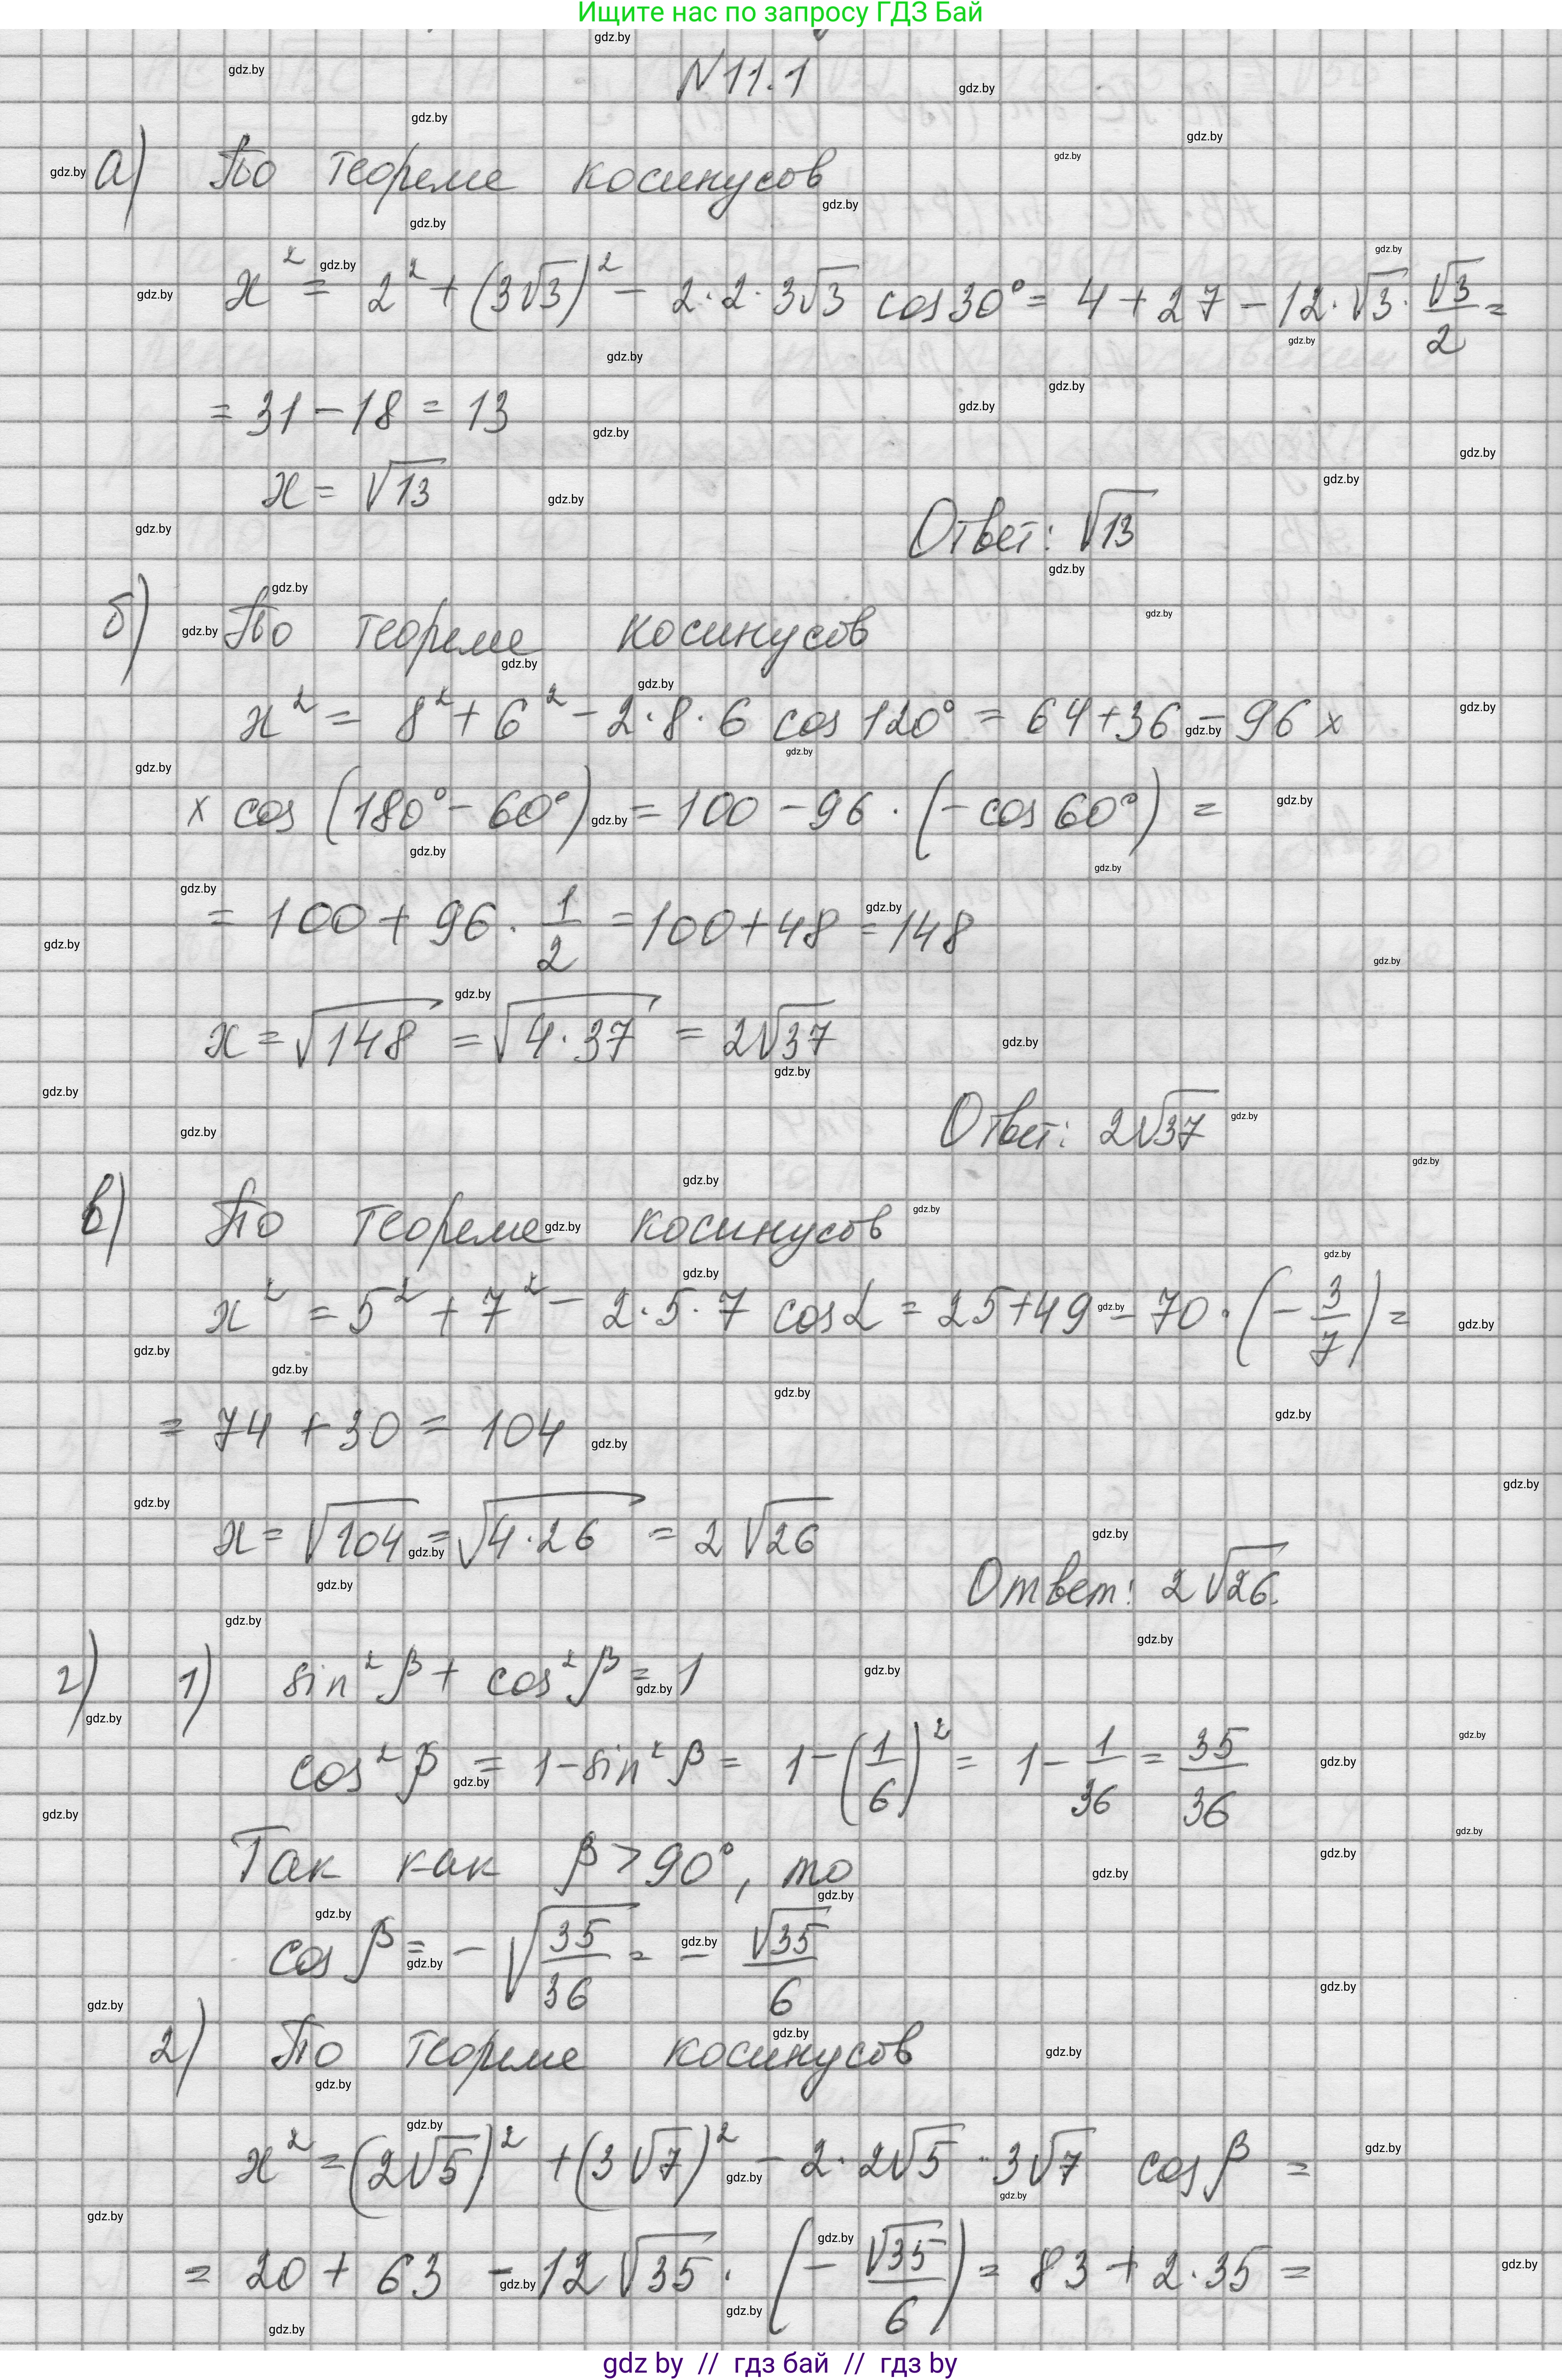 Ищите нас по запросу ГДЗ Бай
N 11.1
а) По теореме косинусов
x² = 2² + (3√3)² - 2·2·3√3 cos 30° = 4 + 27 - 12·√3·√3/2 =
= 31 - 18 = 13
x = √13
Ответ: √13
б) По теореме косинусов
x² = 8² + 6² - 2·8·6 cos 120° = 64 + 36 - 96 ×
× cos (180° - 60°) = 100 - 96·(- cos 60°) =
= 100 + 96·1/2 = 100 + 48 = 148
x = √148 = √4·37 = 2√37
Ответ: 2√37
в) По теореме косинусов
x² = 5² + 7² - 2·5·7 cos α = 25 + 49 - 70·(- 3/7) =
= 74 + 30 = 104
x = √104 = √4·26 = 2√26
Ответ: 2√26.
г) 1) sin² β + cos² β = 1
cos² β = 1 - sin² β = 1 - (1/6)² = 1 - 1/36 = 35/36
Так как β > 90°, то
cos β = - √35/36 = - √35/6
2) По теореме косинусов
x² = (2√5)² + (3√7)² - 2·2√5·3√7 cos β =
= 20 + 63 - 12√35·(- √35/6) = 83 + 2·35 =
gdz by // гдз бай // гдз by